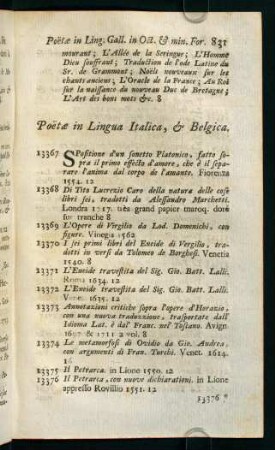 Poëtæ in Ling. Gall. in Oct. & min. For. 831
mourant; L'Allée de la Seringue; L'Homme
Dieu souffrant; Traduction de l'ode Latine du
Sr. de Grammont; Noëls nouveaux sur les
chants anciens; L'Oracle de la France; Au Roi
sur la naissance du nouveau Duc de Bretagne;
L'Art des bons mots &c. 8
Poëtæ in Lingua Italica, & Belgica.
13367 SPositione d'un sonetto Platonico, fatto so-
pra il primo effetto d'amore, che è il sepa-
rare l'anima dal corpo de l'amante. Fiorenza
1554. 12
13368 Di Tito Lucrezio Caro della natura delle cose
libri sei, tradotti da Alessandro Marchetti.
Londra 1717. très grand papier maroq. doré
sur tranche 8
13369 L'Opere di Vergilio da Lod. Domenichi, con
figure. Vinegia 1562
13370 I sei primi libri del Eneide di Vergilio, tra-
dotti in versi da Tolomeo de Borghesi. Venetia
1540. 8
13371 L'Eneide travestita del Sig. Gio. Batt. Lalli.
Roma 1634. 12
13372 L'Eneide travestita del Sig. Gio. Batt. Lalli.
Venet. 1635. 12
13373 Annotazioni critiche sopra l'opere d'Horazio,
con una nuova traduzzione, trasportate dall'
Idioma Lat. è dal Franc. nel Toscano. Avign.
& 1711 2 vol. 8
13374 Le metamorfosi di Ovidio da Gio. Andrea,
con argomenti di Fran. Turchi. Venet. 1614.
16
13375 Il Petrarca. in Lione 1550. 12
13376 Il Petrarca, con nuove dichiarationi. in Lione
appresso Rovillio 1551. 12
13376 *